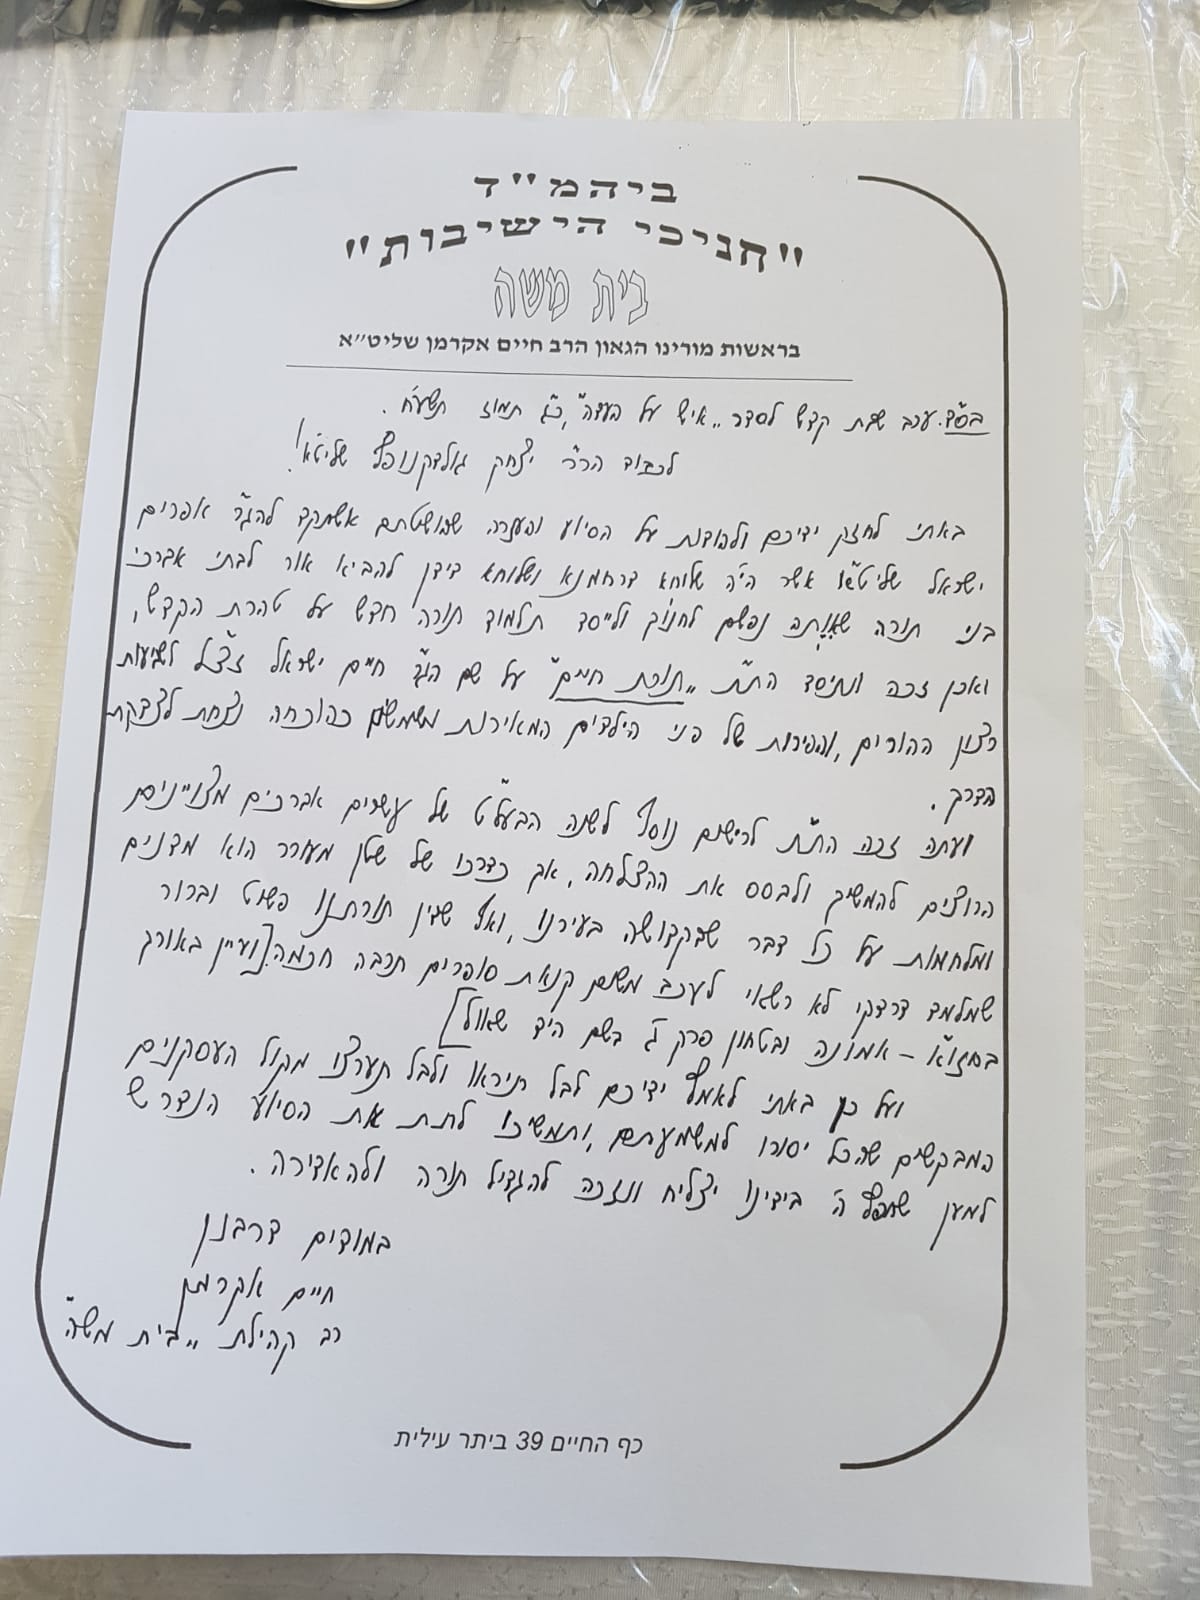 ביהמ"ד
"חניכי הישיבות"
בית משה
בראשות מורינו הגאון הרב חיים אקרמן שליט"א
בס"ד. ערב שבת קדש לסדר "איש על העדה", כ"ג תמוז תשע"ח.
לכבוד הר"ר יצחק גולדקנופף שליט"א!
באתי לחזק ידיכם ולהודות על הסיוע והעזרה שהושטתם אשתקד להג"ר אפרים
ישראל שליט"א אשר הי' שלוחא דרחמנא ושלוחא דידן להביא אור לבתי אברכי
בני תורה שאִוְתָה נפשם לחנוך ולייסד תלמוד תורה חדש על טהרת הקדש,
ואכן זכה ונתיסד הת"ת "תורת חיים" על שם הג"ר חיים ישראל זצ"ל לשביעות
רצון ההורים, והפירות של פני הילדים המאירות משמשים כהוכחה נצחת לצדקת
הדרך.
ועתה זכה הת"ת לרישום נוסף לשנה הבעל"ט של עשרים אברכים מצויינים
הרוצים להמשיך ולבסס את ההצלחה, אך כדרכו של שטן מעורר הוא מדנים
ומלחמות על כל דבר שבקדושה בעירנו, ואף שדין תורתנו פשוט וברור
שמלמד דרדקי לא רשאי לעכב משום קנאת סופרים תרבה חכמה. [ועיין באורך
בחזו"א – אמונה ובטחון פרק ג' בשם היד שאול]
ועל כן באתי לאמץ ידיכם לבל תיראו ולבל תערצו מקול העסקנים
המבקשים שהכל יסורו למשמעתם, ותמשיכו לתת את הסיוע הנדרש
למען שחפץ ה' בידינו יצליח ונזכה להגדיל תורה ולהאדירה.
במודים דרבנן
חיים אקרמן
רב קהילת "בית משה"
כף החיים 39 ביתר עילית